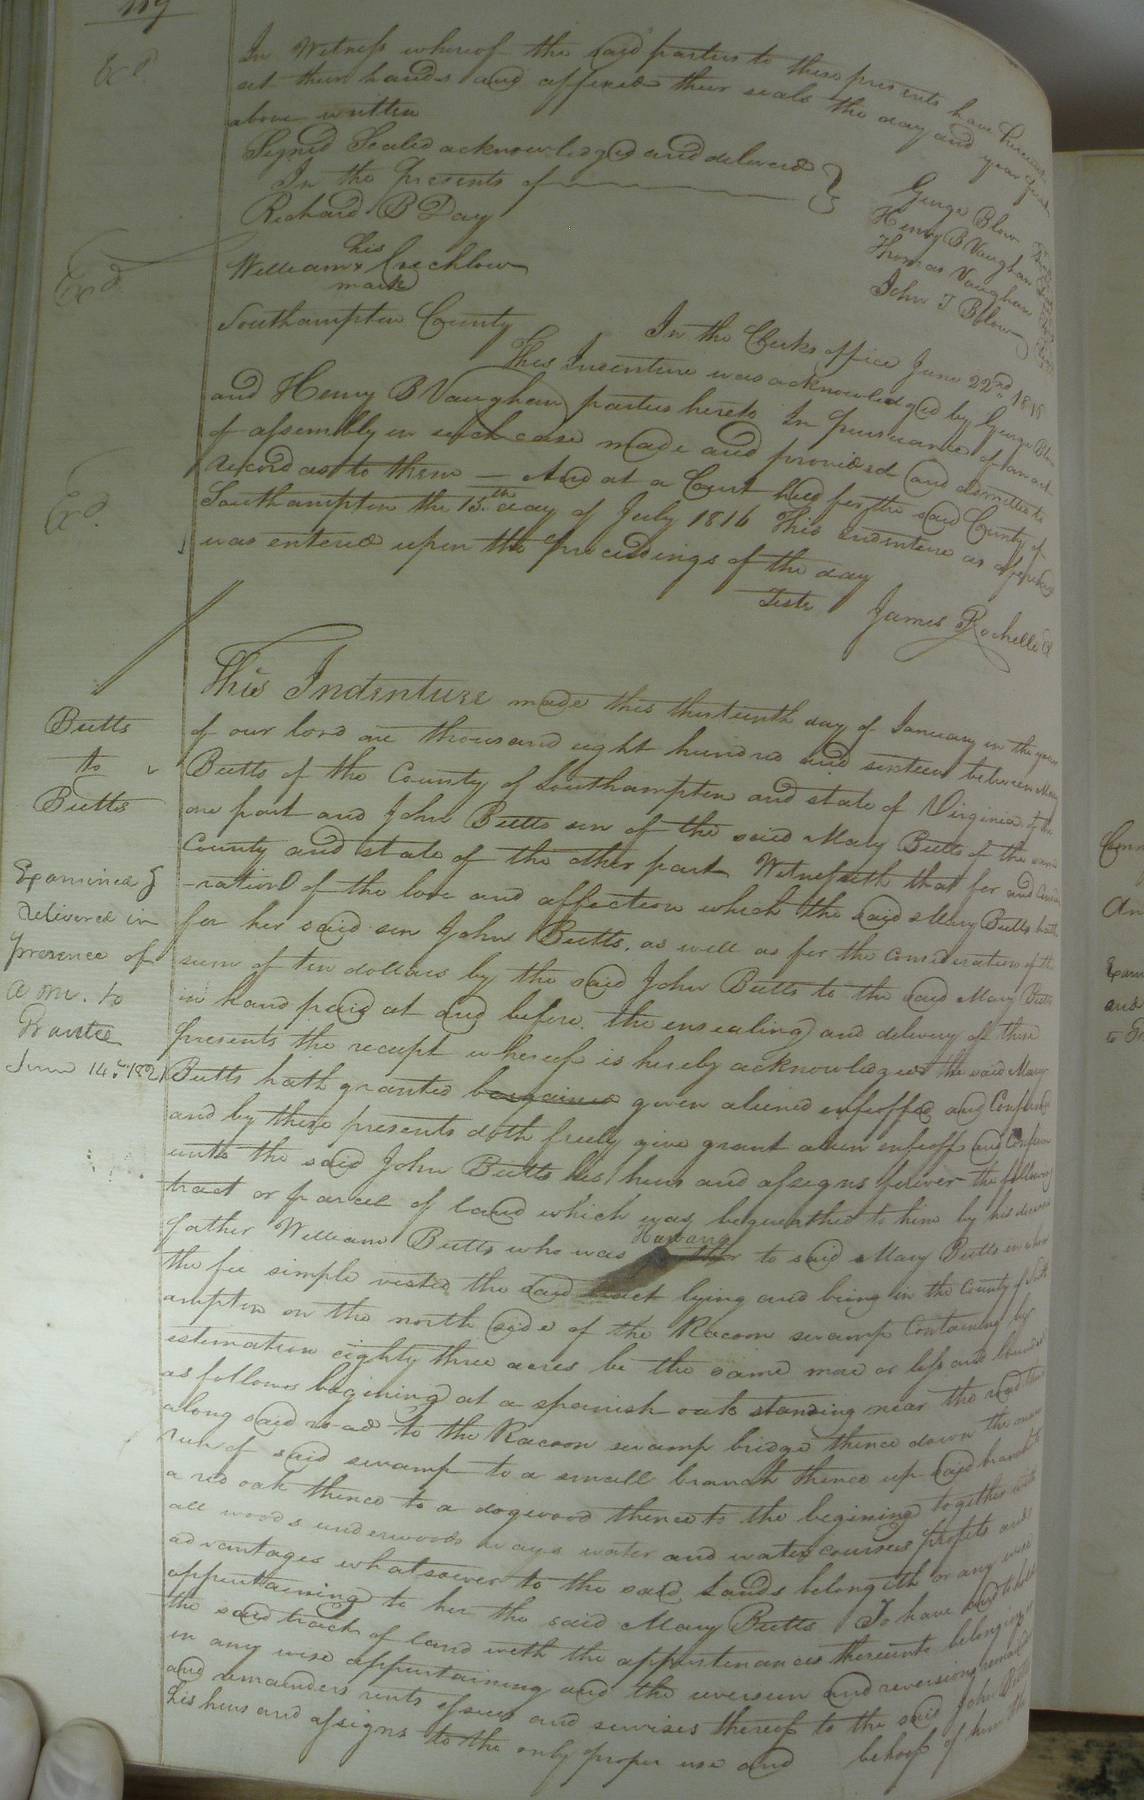 In Witness whereof the said parties to these presents have hereunto
set their hands and affixed their seals the day and year first
above written
Signed Sealed acknowledged and delivered
In the Presents of
Richard B Day
his
William x Crechlow
mark
George Blow
Henry B Vaughan
Thomas Vaughan
John T Blow
Exd
Exd
Exd
Southampton County
In the Clerks office June 22nd 1816
This Indenture was acknowledged by George Blow
and Henry B Vaughan parties hereto In pursuance of an act
of assembly in such case made and provided and admitted to
record as to them — And at a Court held for the said County of
Southampton the 15th day of July 1816 This indenture as aforesaid
was entered upon the proceedings of the day
Teste James Rochelle Cl
Butts
to
Butts
Examined &
delivered in
presence of
to
Grantee
June 14th 1821
This Indenture made this thirteenth day of January in the year
of our lord one thousand eight hundred and sixteen between Mary
Butts of the County of Southampton and state of Virginia of the
one part and John Butts son of the said Mary Butts of the same
County and state of the other part Witnesseth that for and Conside
-ration of the love and affection which the said Mary Butts hath
for her said son John Butts, as well as for the consideration of the
sum of ten dollars by the said John Butts to the said Mary Butts
in hand paid at and before the ensealing and delivery of these
presents the receipt whereof is hereby acknowledged the said Mary
Butts hath granted bargained given aliened enfeoffed and Confirmed
and by these presents doth freely give grant alien enfeoff and Confirm
unto the said John Butts his heirs and assigns forever the following
tract or parcel of land which was bequeathed to him by his deceased
Husband
father William Butts who was to said Mary Butts in whom
the fee simple vested the said tract lying and being in the County of South
ampton on the north side of the Racoon swamp Containing by
estimation eighty three acres be the same more or less and bounded
as follows begining at a spanish oak standing near the road thence
along said road to the Racoon swamp bridge thence down the
run of said swamp to a small branch thence up said branch to
a red oak thence to a dogwood thence to the begining together with
all woods underwoods ways water and water courses profits and
advantages whatsoever to the said Lands belongith or any wise
appurtaining to her the said Mary Butts To have and to hold
the said track of land with the appurtenances thereunto belonging
in any wise appurtaining and the reversion and reversions remainder
and remainders rents issues and servises thereof to the said John Butts
his heirs and assigns to the only proper use and behoof of him the